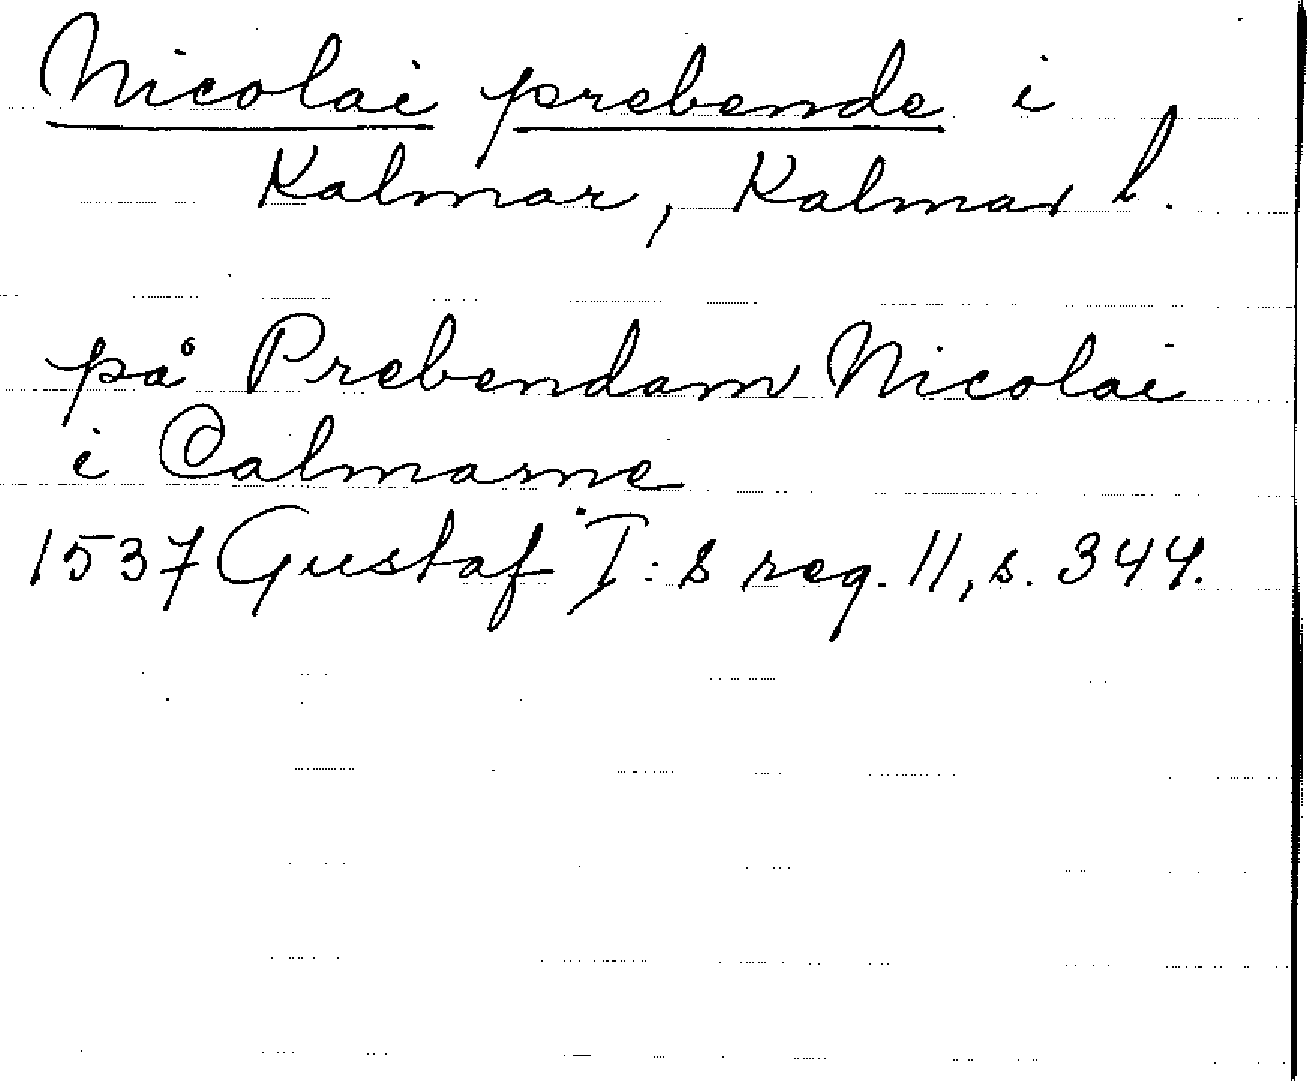 Nicolai prebende i
Kalmar, Kalmar l.
på Prebendam Nicolai
i Calmarne
1537 Gustaf I:s reg. 11, s. 344.